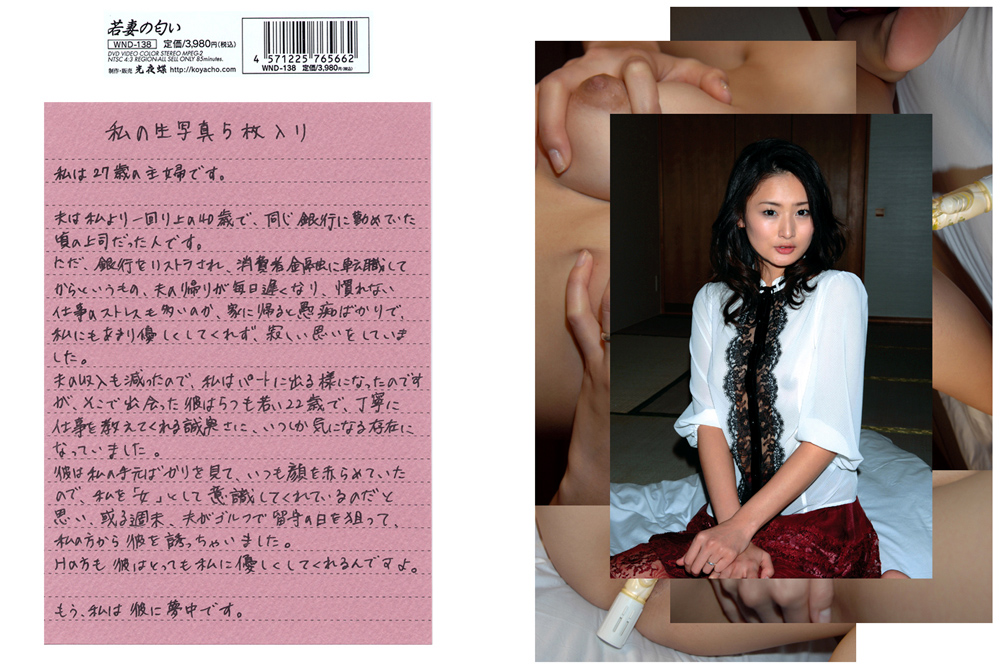 若妻の匂い
WND-138 定価/3,980円(税込)
DVD VIDEO COLOR STEREO MPEG-2
NTSC 4:3 REGION:ALL SELL ONLY 85minutes.
制作・販売 光夜蝶 http://koyacho.com
4 571225 765662
WND-138 定価/3,980円(税込)
私の生写真5枚入り
私は27歳の主婦です。
夫は私より一回り上の40歳で、同じ銀行に勤めていた
頃の上司だった人です。
ただ、銀行をリストラされ、消費者金融に転職して
からというもの、夫の帰りが毎日遅くなり、慣れない
仕事のストレスも多いのか、家に帰ると愚痴ばかりで、
私にもあまり優しくしてくれず、寂しい思いをしていま
した。
夫の収入も減ったので、私はパートに出る様になったのです
が、そこで出会った彼は5つも若い22歳で、丁寧に
仕事を教えてくれる誠実さに、いつしか気になる存在に
なっていました。
彼は私の手元ばかりを見て、いつも顔を赤らめていた
ので、私を「女」として意識してくれているのだと
思い、或る週末、夫がゴルフで留守の日を狙って、
私の方から彼を誘っちゃいました。
Hの方も彼はとっても私に優しくしてくれるんですよ。
もう、私は彼に夢中です。